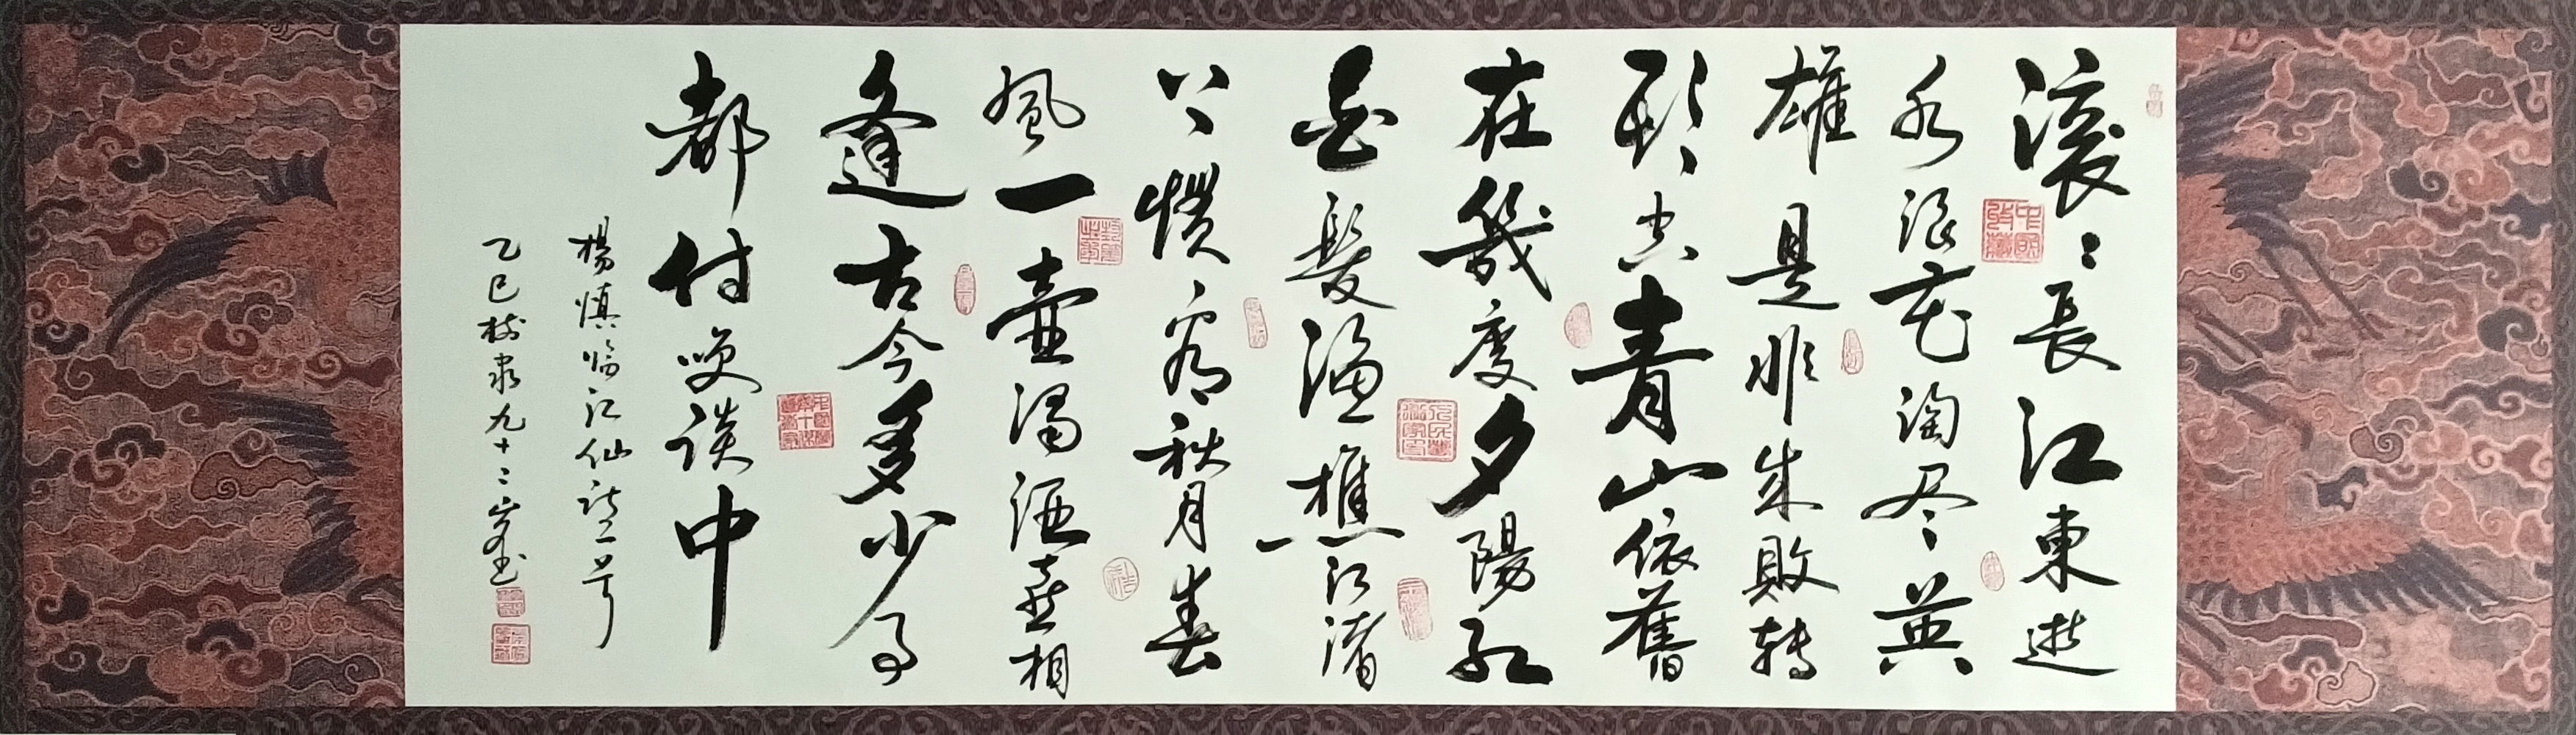 滚〻長江東逝
水浪花淘尽英
雄是非成敗转
头空青山依舊
在幾度夕陽红
白髮漁樵江渚
上慣看秋月春
風一壶濁酒喜相
逢古今多少事
都付笑談中
楊慎临江仙詩一首
乙巳 九十二岁书